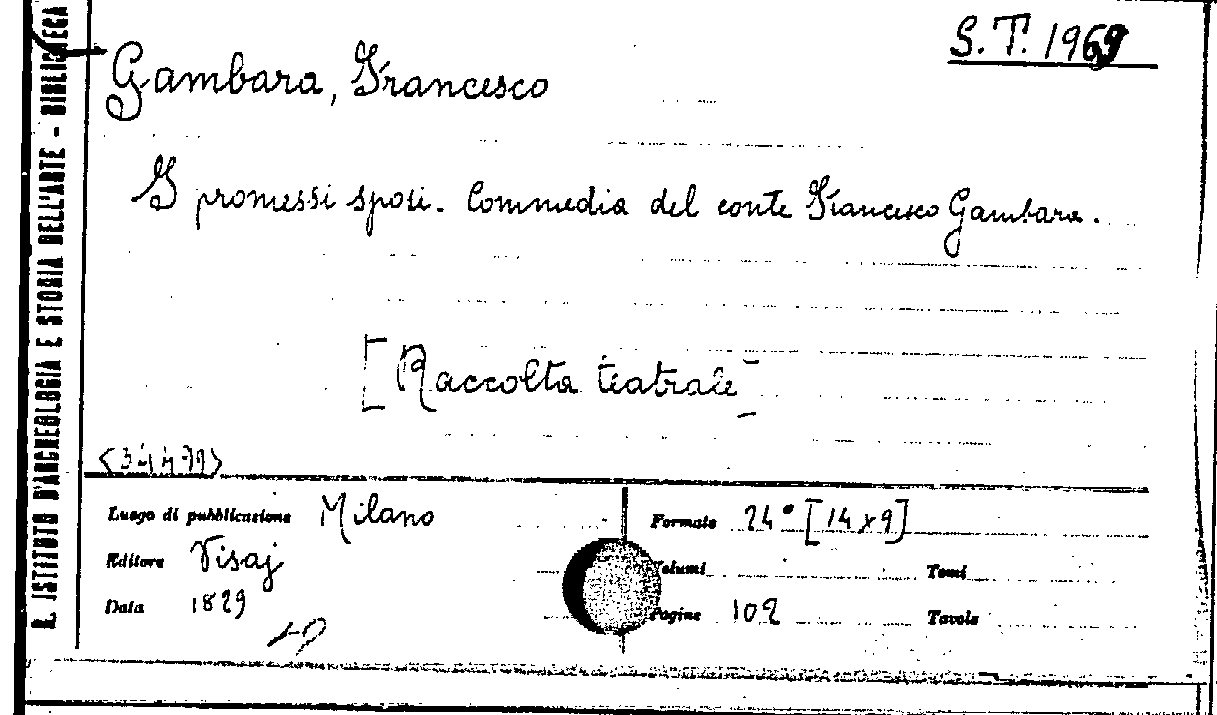 R. ISTITUTO D'ARCHEOLOGIA E STORIA DELL'ARTE - BIBLIOTECA
S. T. 1969
Gambara, Francesco
I promessi sposi. Commedia del conte Francesco Gambara.
[Raccolta teatrale]
Luogo di pubblicazione Milano
Editore Visaj
Data 1829
Formato 24° [14 x 9]
Volumi
Tomi
Pagine 102
Tavole